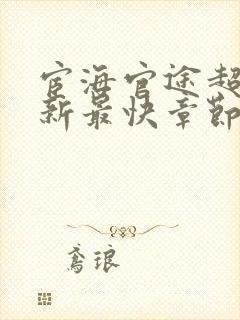 宦海官途超
新最快章节
鸢琅